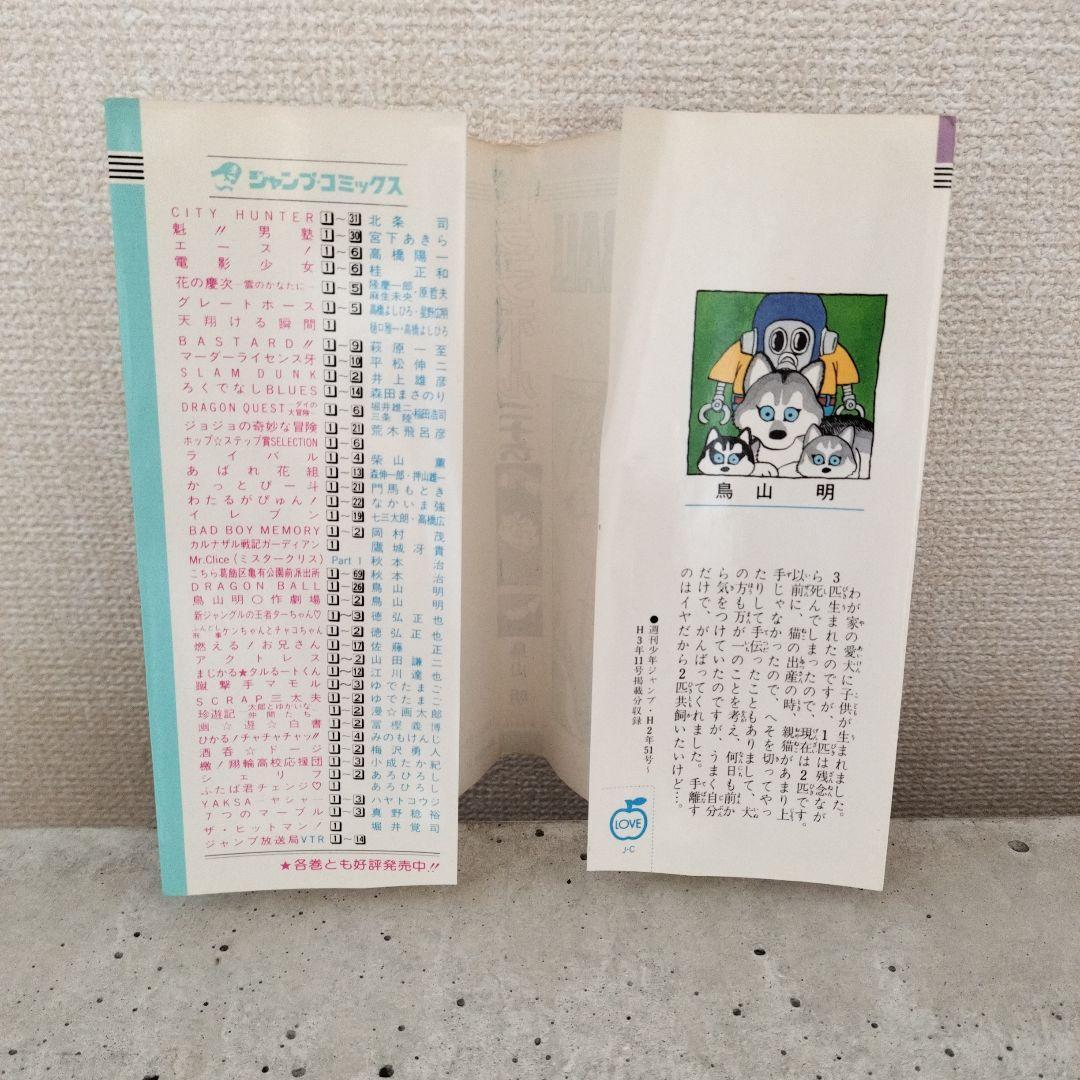 ジャンプ・コミックス
CITY HUNTER 1〜31 北条司
魁!!男塾 1〜30 宮下あきら
エース! 1〜6 高橋陽一
電影少女 1〜6 桂正和
花の慶次―雲のかなたに― 1〜5 隆慶一郎・麻生未央・原哲夫
グレートホース 1〜5 高橋よしひろ・星野広明
天翔ける瞬間 1 樋口雅一・高橋よしひろ
BASTARD!! 1〜9 萩原一至
マーダーライセンス牙 1〜10 平松伸二
SLAM DUNK 1〜2 井上雄彦
ろくでなしBLUES 1〜14 森田まさのり
DRAGON QUEST―ダイの大冒険― 1〜6 堀井雄二・三条陸・稲田浩司
ジョジョの奇妙な冒険 1〜21 荒木飛呂彦
ホップ☆ステップ賞SELECTION 1〜6
ライバル 1〜4 柴山薫
あばれ花組 1〜13 森伸一郎・押山雄一
かっとび一斗 1〜21 門馬もとき
わたるがぴゅん! 1〜22 なかいま強
イレブン 1〜19 七三太朗・高橋広
BAD BOY MEMORY 1〜2 岡村茂
カルナザル戦記ガーディアン 1 鷹城冴貴
Mr.Clice(ミスタークリス) Part 1 秋本治
こちら葛飾区亀有公園前派出所 1〜69 秋本治
DRAGON BALL 1〜26 鳥山明
鳥山明〇作劇場 1〜2 鳥山明
新ジャングルの王者ターちゃん♡ 1〜3 徳弘正也
ふんどし刑事ケンちゃんとチャコちゃん 1〜2 徳弘正也
燃える!お兄さん 1〜17 佐藤正
アクトレス 1〜2 山田謙二
まじかる★タルるートくん 1〜12 江川達也
蹴撃手マモル 1〜3 ゆでたまご
SCRAP三太夫 1〜2 ゆでたまご
珍遊記―太郎とゆかいな仲間たち― 1〜2 漫☆画太郎
幽☆遊☆白書 1〜2 冨樫義博
ひかる!チャチャチャッ!! 1〜4 みのもけんじ
酒呑☆ドージ 1〜2 梅沢勇人
檄!翔輪高校応援団 1〜3 小成たか紀
シェリフ 1〜2 あろひろし
ふたば君チェンジ♡ 1 あろひろし
YAKSA―ヤシャ― 1〜3 ハヤトコウジ
7つのマーブル 1〜3 真野稔裕
ザ・ヒットマン! 1 堀井覚司
ジャンプ放送局VTR 1〜14
★各巻とも好評発売中!!
鳥山 明
わが家の愛犬に子供が生まれました。
3匹生まれたのですが、1匹は残念なが
ら死んでしまったので、現在は2匹です。
以前に、猫の出産の時、親猫があまり上
手じゃなかったので、へそを切ってやっ
たりして手伝ったこともありまして、犬
の方も万が一のことを考え、何日も前か
ら気をつけていたのですが、うまく自分
だけで、がんばってくれました。手離す
のはイヤだから2匹共飼いたいけど…。
●週刊少年ジャンプ・H2年51号〜
H3年11号掲載分収録
LOVE
J・C